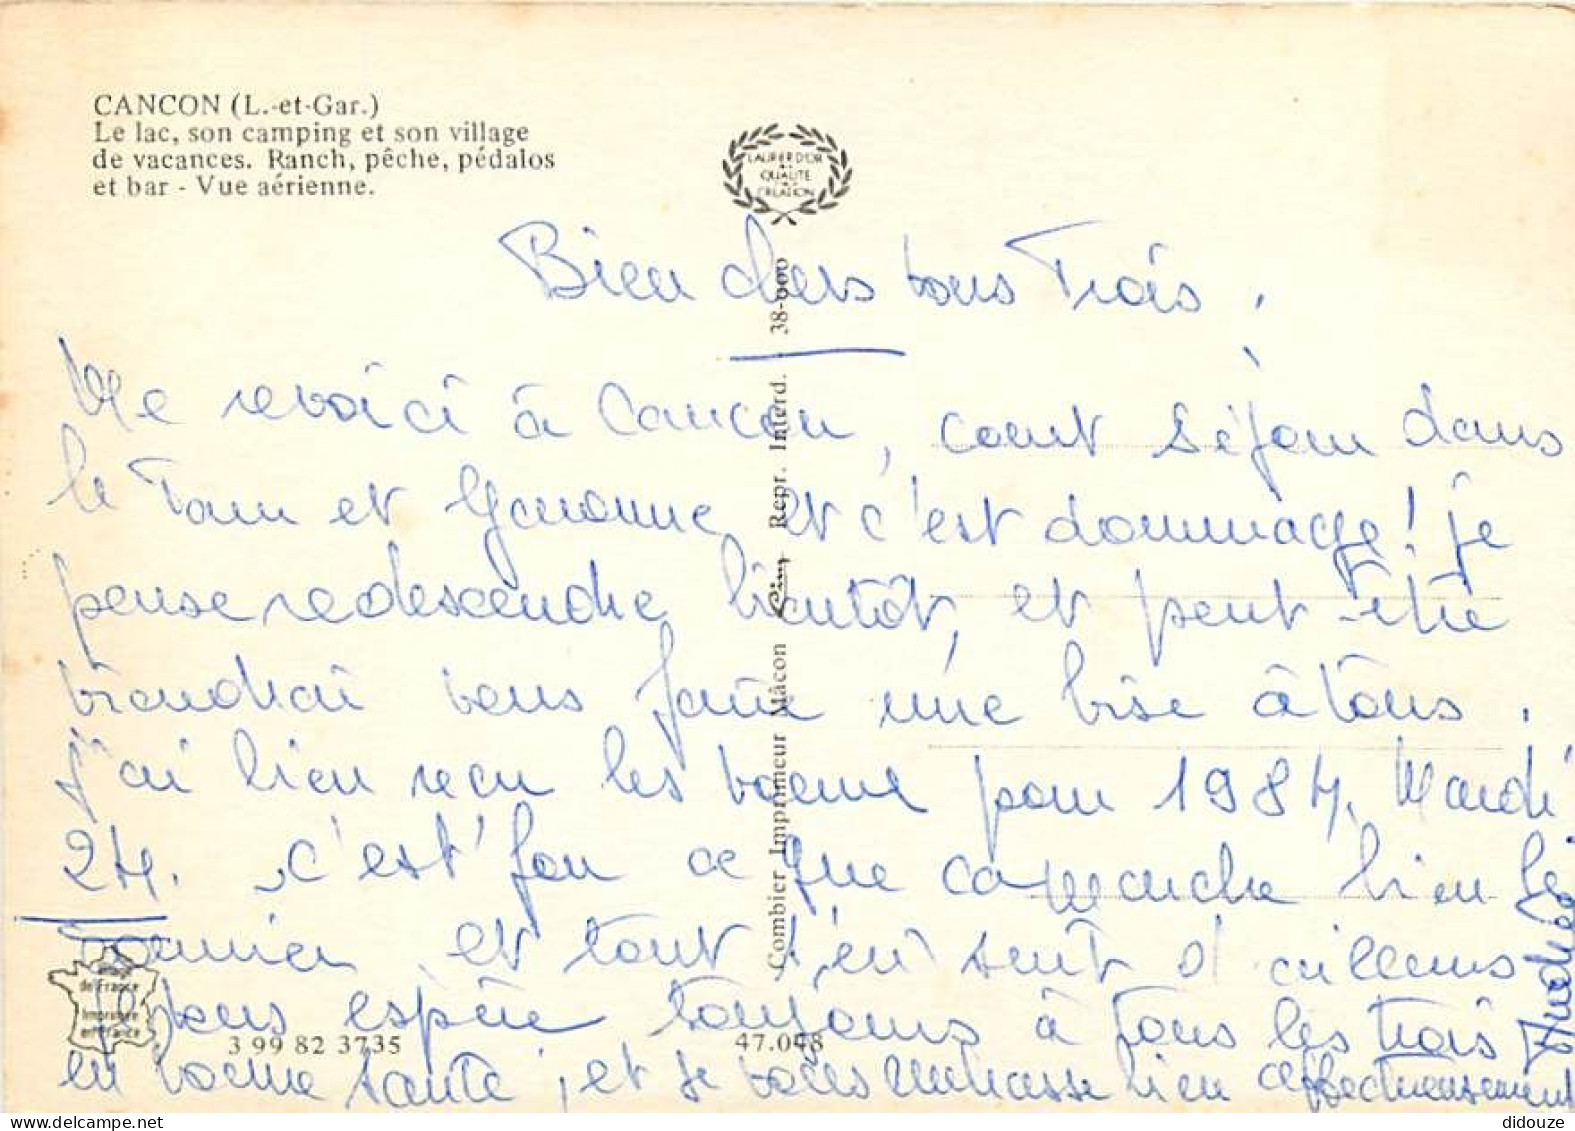 CANCON (L.-et-Gar.)
Le lac, son camping et son village
de vacances. Ranch, pêche, pédalos
et bar - Vue aérienne.
LAURIER D'OR
QUALITE
CREATION
Bien chers tous Trois,
Me revoici à Cancon, court séjour dans
le Tarn et Garonne et c'est dommage! je
pense redescendre bientôt, et peut-être
viendrai vous faire une bise à tous.
j'ai bien reçu les vœux pour 1984. Mardi
24. c'est fou ce que ça marche bien
et tout s'en sent d'ailleurs
vous espère toujours à tous les trois
en bonne santé, et je vous embrasse bien affectueusement
Andrée
Combier Imprimeur Mâcon Repr. Interd. 38-000
Image
de France
Imprimée
en France
3 99 82 3735
47.048
didouze